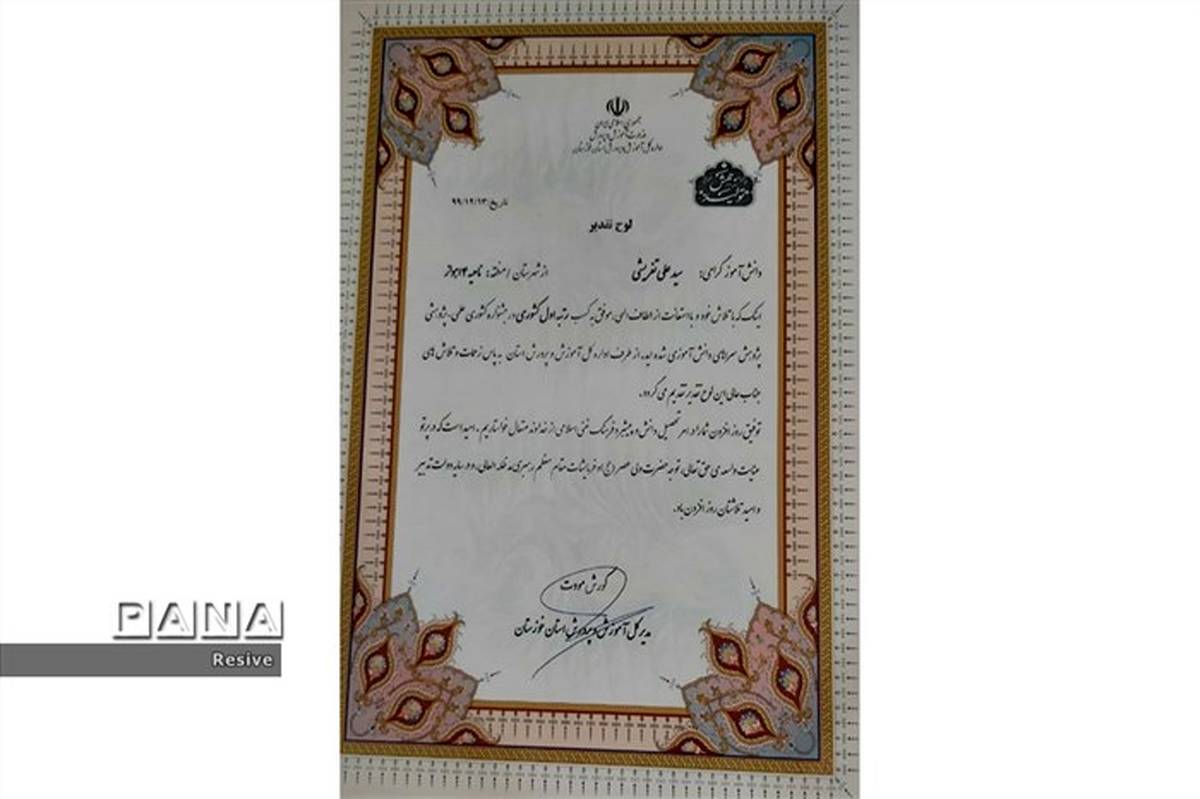 جمهوری اسلامی ایران
وزارت آموزش و پرورش
اداره کل آموزش و پرورش استان خوزستان
جهش تولید
تاریخ: ۹۹/۱۲/۱۳
لوح تقدیر
دانش آموز گرامی: سید علی تفریشی از شهرستان / منطقه: ناحیه ۴ اهواز
اینک که با تلاش خود و با استعانت از الطاف الهی، موفق به کسب رتبه اول کشوری در جشنواره کشوری علمی، پژوهشی
پژوهش سراهای دانش آموزی شده اید، از طرف اداره کل آموزش و پرورش استان به پاس زحمات و تلاش های
جناب عالی این لوح تقدیر تقدیم می گردد.
توفیق روز افزون شما را در امر تحصیل دانش و پیشبرد فرهنگ غنی اسلامی از خداوند متعال خواستاریم. امید است که در پرتو
عنایت واسعه ی حق تعالی، توجه حضرت ولی عصر (عج) و فرمایشات مقام معظم رهبری مد ظله العالی، و در سایه دولت تدبیر
و امید تلاشتان روز افزون باد.
کورش مودت
مدیر کل آموزش و پرورش استان خوزستان
PANA
Resive